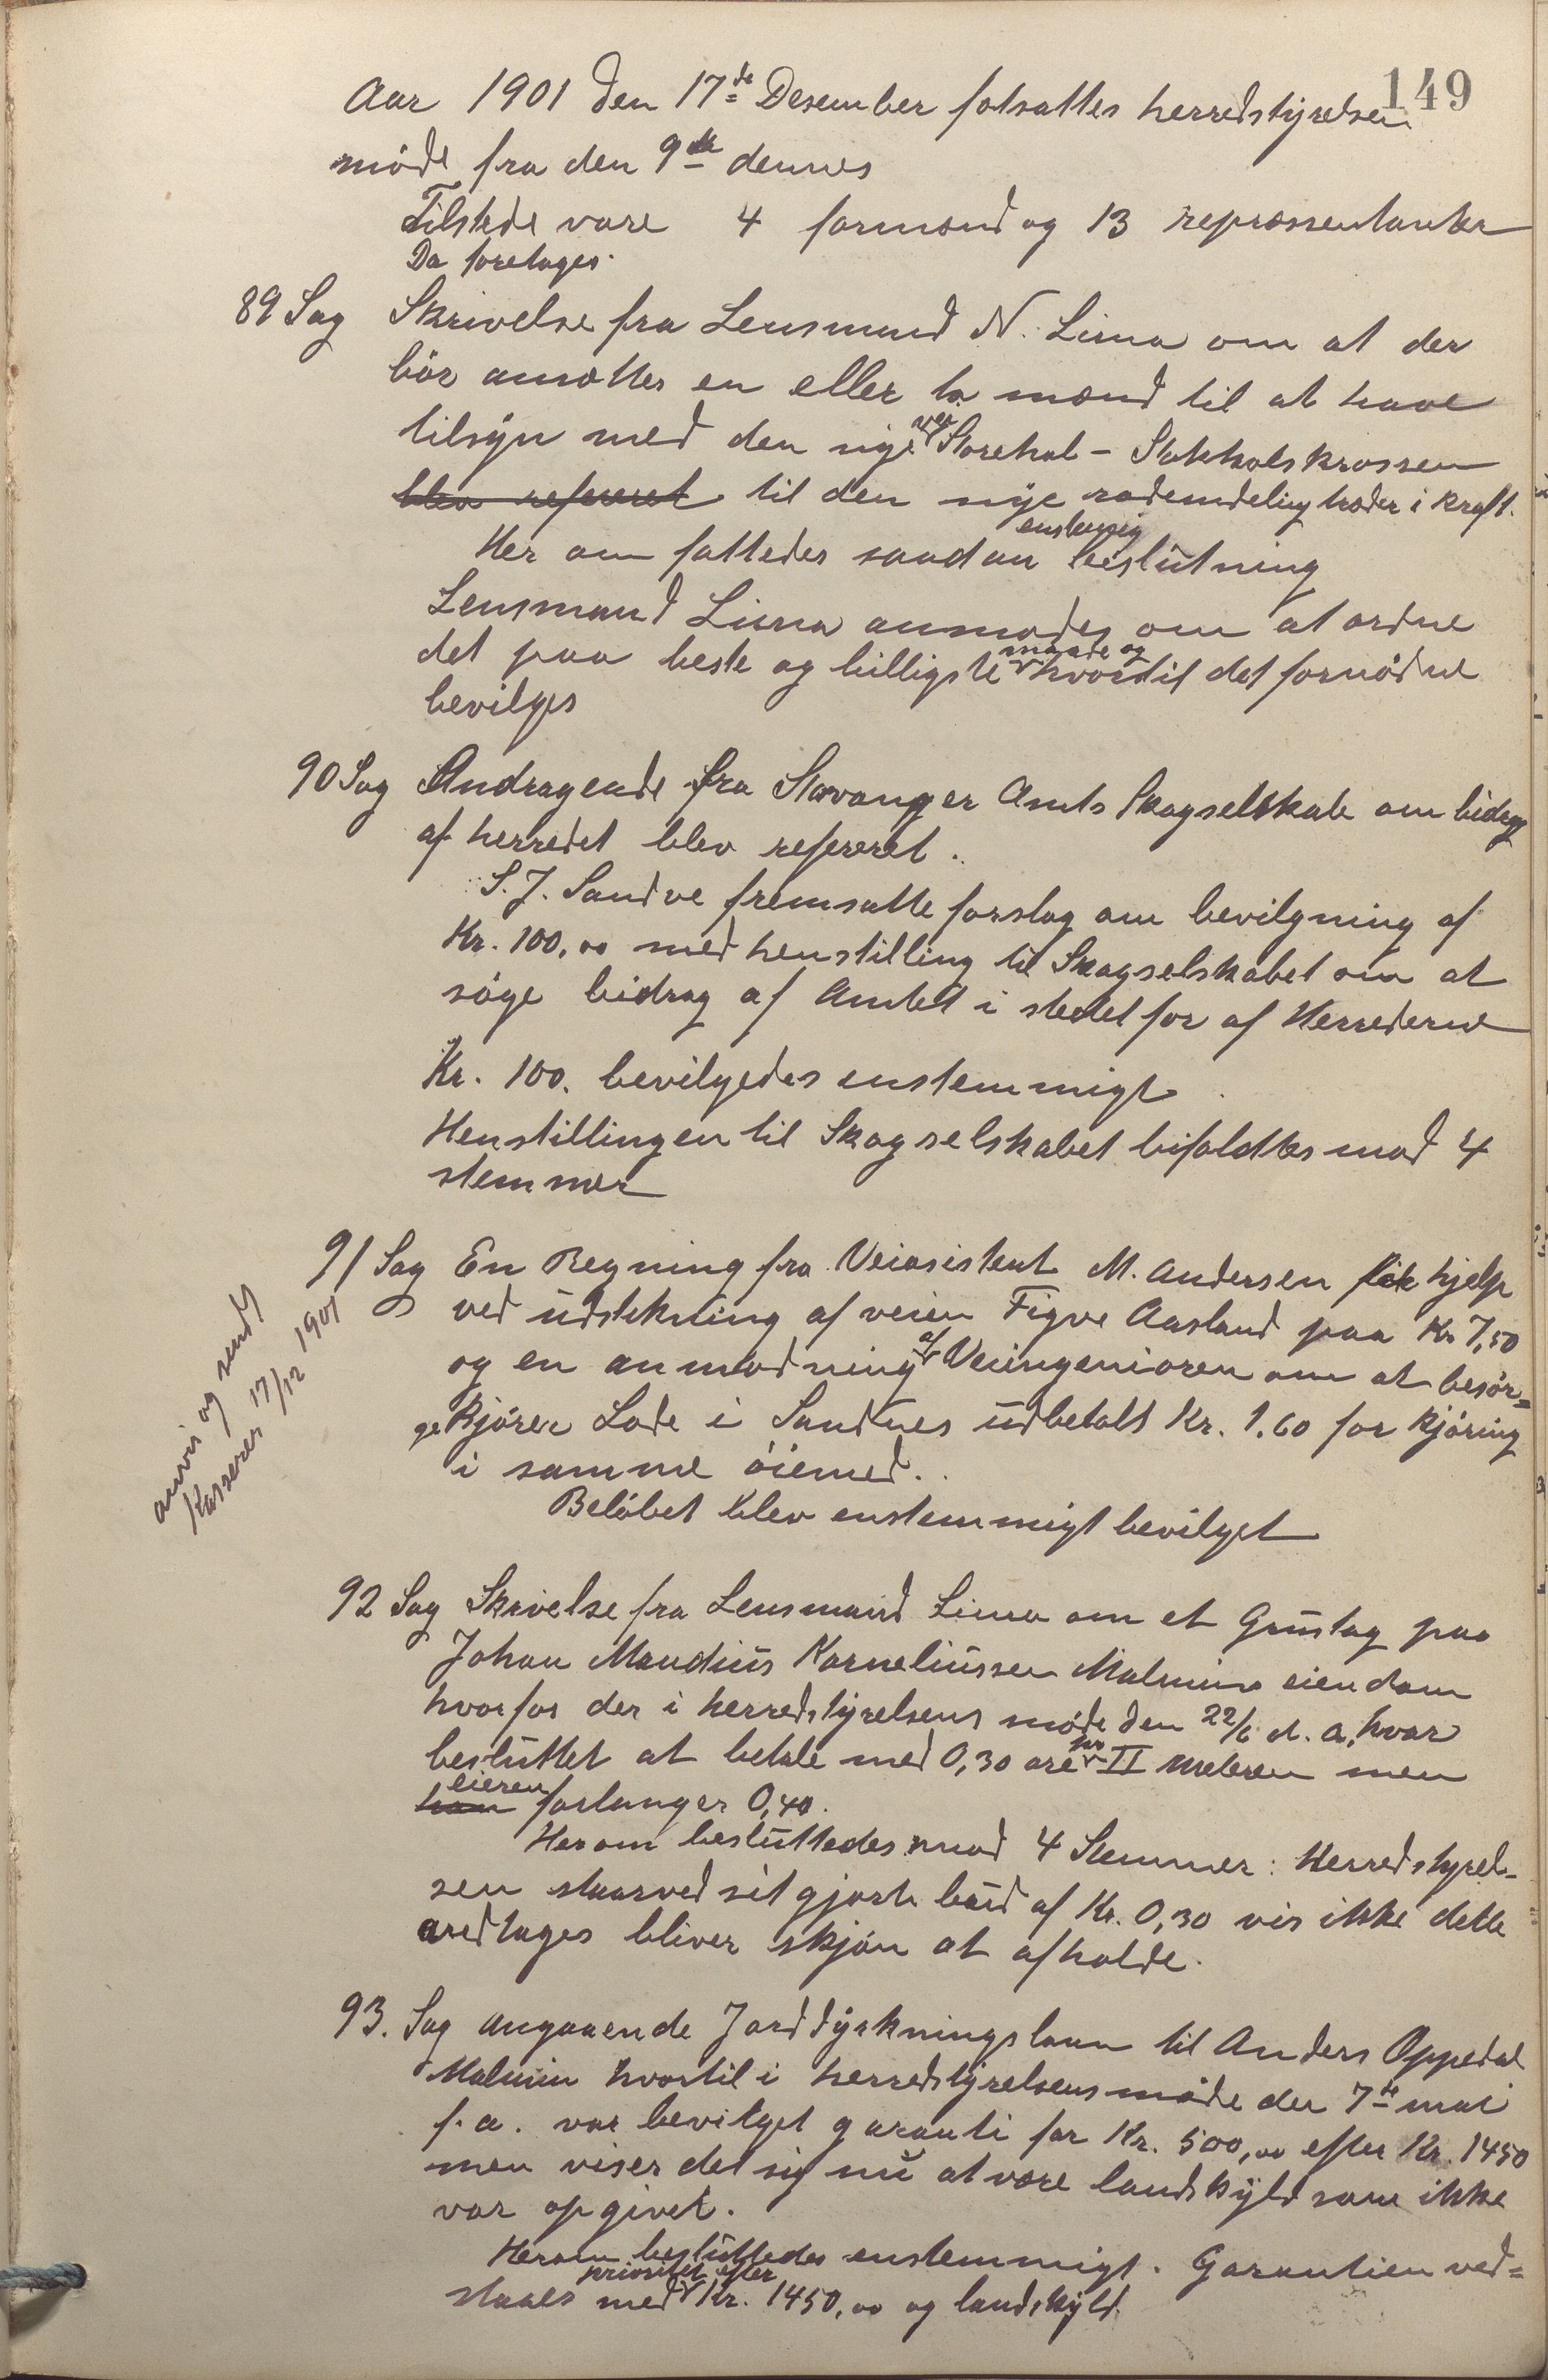 149
Aar 1901 den 17de Desember fotsattes herredstyrelsen
møde fra den 9de dennes
Tilstede vare 4 formænd og 13 repræssentanter
Da foretages.
89 Sag Skrivelse fra Lensmand N. Lima om at der
bör ansættes en eller to mænd til at have
tilsyn med den nye vei Storehol - Stokholskrossen
blev refereret til den nye rodeindeling træder i kraft.
Her om fattedes saadan enstemig beslutning
Lensmand Lima anmodes om at ordne
det paa beste og billigste maade og hvortil det fornödne
bevilges
90 Sag Andragende fra Stavanger Amts Skogselskab om bidrag
af herredet blev refereret.
S. J. Sandve fremsatte forslag om bevilgning af
Kr. 100,00 med henstilling til Skogselskabet om at
söge bidrag af Amtet i stedet for af Herrederne
Kr. 100. bevilgedes enstemmigt
Henstillingen til Skogselskabet bifaldtes mod 4
stemmer
91 Sag En Regning fra Veiasistent M. Andersen for hjelp
ved udstikning af veien Figve Aasland paa Kr 7,50
og en anmodning af Veiingeniören om at besör=
ge Kjörer Lode i Sandnes udbetalt Kr. 1.60 for kjöring
i samme öiemed.
Belöbet blev enstemmigt bevilget
anvis og sendt
Kasserer 17/12 1901
92 Sag Skrivelse fra Lensmand Lima om et Grustag paa
Johan Mandius Korneliussen Malmins eiendom
hvorfor der i herredstyrelsens møde den 22/6 d. a. hvor
besluttet at betale med 0,30 øre for II meteren men
han eieren forlanger 0,40.
Herom besluttedes mod 4 Stemmer: Herredstyrel-
sen staar ved sit gjorte bud af Kr. 0,30 vis ikke dette
vedtages bliver skjön at afholde.
93. Sag angaaende Jorddyrkningslaan til Anders Oppedal
Malmin hvortil i herredstyrelsens møde den 7de mai
f. a. var bevilget garanti for Kr. 500,00 efter Kr. 1450
men viser det sig nu at være landskyld som ikke
var opgivet.
Herom besluttedes enstemmigt. Garantien ved=
staaes med prioritet efter Kr. 1450,00 og landskyld.